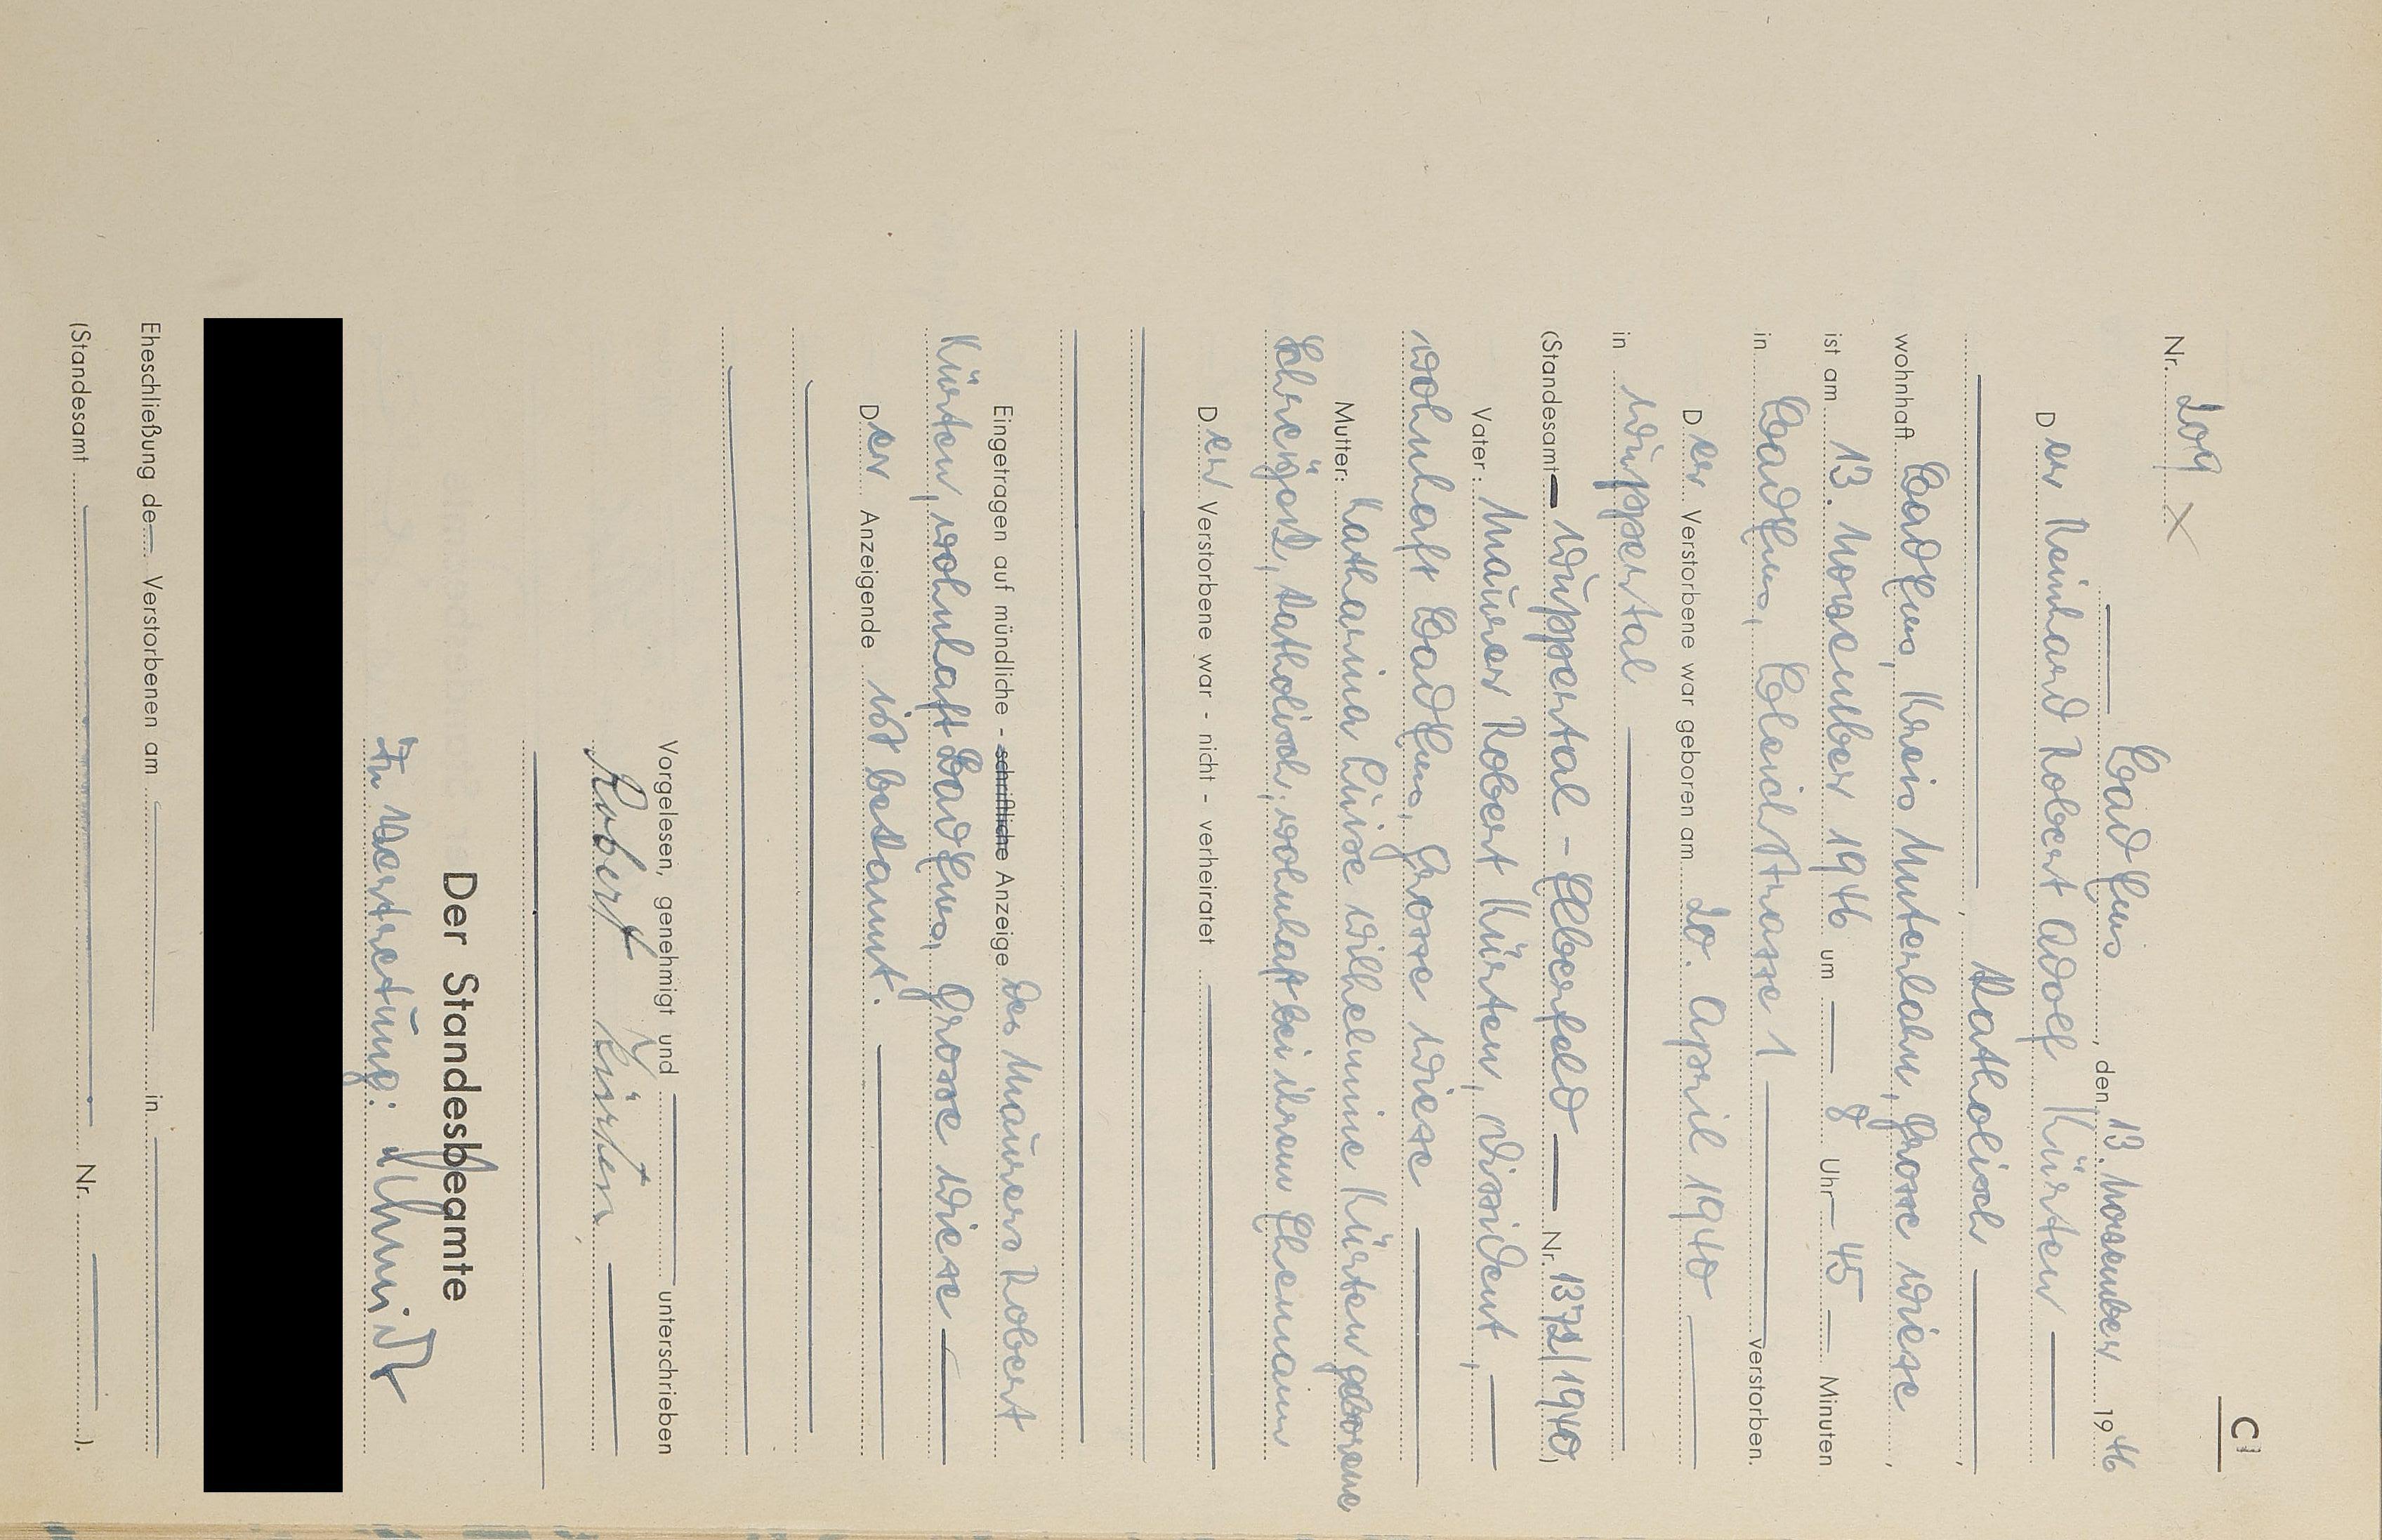 C1
Nr. 209 X
Laasphe, den 13. November 1946
Der Reinhard Robert Adolf Kürten
, katholisch
wohnhaft Kreis , Grosse Wiese,
ist am 13. November 1946 um 8 Uhr 45 Minuten
in strasse 1 verstorben.
Der Verstorbene war geboren am 20. April 1940
in Wuppertal
(Standesamt Wuppertal - Elberfeld Nr. 1372/1940)
Vater: Maurer Robert Kürten, Dissident,
wohnhaft Grosse Wiese
Mutter: Katharina Luise Wilhelmine Kürten geborene
katholisch, wohnhaft bei ihrem Ehemann
Der Verstorbene war - nicht - verheiratet
Eingetragen auf mündliche - schriftliche Anzeige des Maurers Robert
Kürten, wohnhaft Grosse Wiese
Der Anzeigende ist bekannt.
Vorgelesen, genehmigt und unterschrieben
Robert Kürten
Der Standesbeamte
In Vertretung: Schmidt
Eheschließung de Verstorbenen am in
(Standesamt Nr. ).